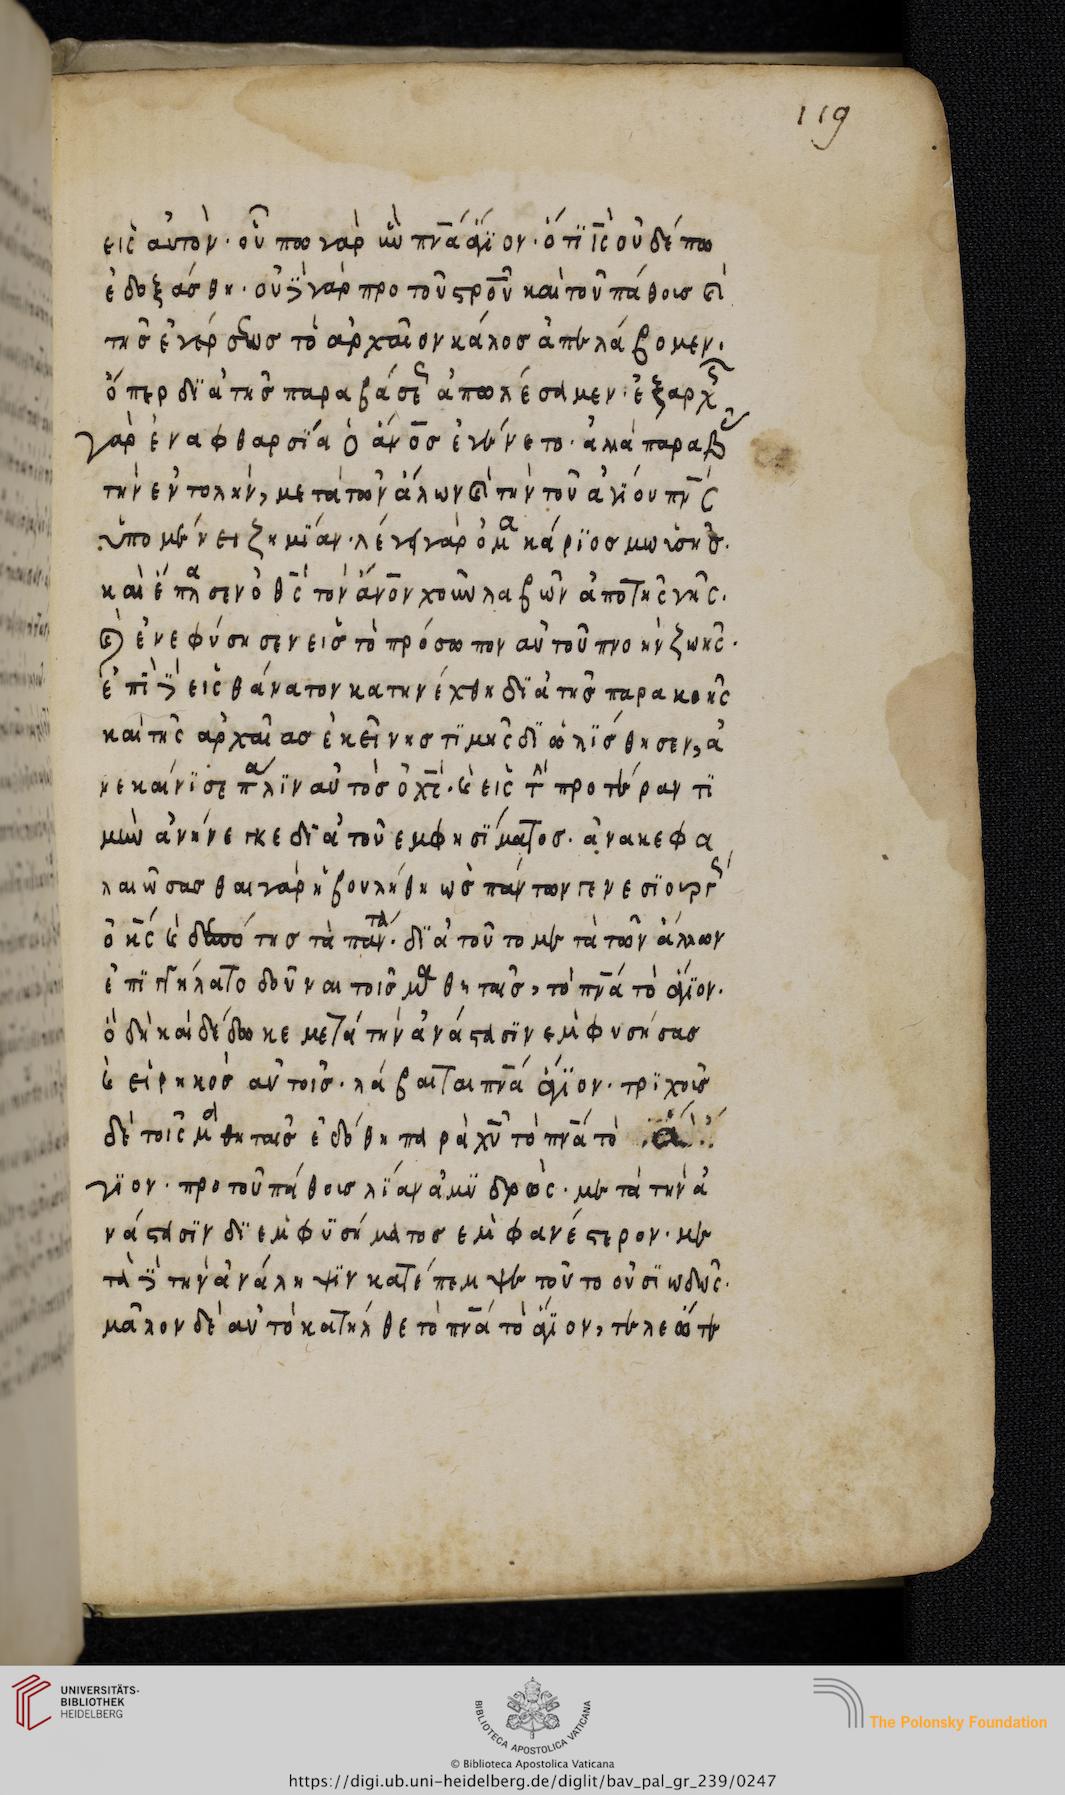 119
εἰς αὐτόν· οὔπω γὰρ ἦν πνᾶ ἅγϊον· ὅτϊ ἰς οὐδέπω
ἐδοξάσθη· οὔτε γὰρ προ τοῦ στροῦ καὶ τοῦ πάθους καὶ
τῆς ἐγέρσεως τὸ ἀρχαῖον κάλος ἀπελάβομεν·
ὅπερ δϊὰ τῆς παραβάσεως ἀπωλέσαμεν· ἐξαρχῆς
γὰρ ἐν αφθαρσίᾳ ὁ ἄνος ἐγένετο· ἀλὰ παραβὰς
τὴν ἐντολὴν, μετὰ τῶν ἄλων καὶ τὴν τοῦ ἁγίου πνς
ὑπομένει ζημίαν· λέγει γὰρ ὁ μακάρϊος μωϊσῆς·
καὶ ἔπλασεν ὁ θς τὸν ἄνον χοῦν λαβῶν ἀπο τῆς γῆς·
καὶ ἐνεφύσησεν εἰς τὸ πρόσωπον αὐτοῦ πνοὴν ζωῆς·
ἐπεὶ δὲ εἰς θάνατον κατηνέχθη δϊὰ τῆς παρακοῆς
καὶ τῆς ἀρχαῖας ἐκεῖνης τϊμῆς δϊ ὠλϊσθησεν, ἀ
νεκαίνϊσε πάλϊν αὐτὸς ὁ χς· καὶ εἰς τὴν προτέραν τϊ
μὴν ἀνήνεγκε δϊὰ τοῦ εμφησίματος· ἀνακεφα
λαιῶσασθαι γὰρ ἠβουλήθη ὡς πάντων γενεσϊουργὸς
ὁ κς καὶ δεσπότης τὰ πάντα· δϊὰ τοῦτο μετὰ τῶν ἄλλων
ἐπϊγγήλατο δοῦναι τοῖς μαθηταῖς, τὸ πνᾶ τὸ ἅγϊον·
ὁ δὴ καὶ δέδωκε μετὰ τὴν ἀνάστασϊν ἐμφυσήσας
καὶ εἰρηκὸς αὐτοῖς· λάβαιται πνᾶ ἅγϊον· τρϊχοῖς
δὲ τοῖς μαθηταῖς ἐδόθη παρὰ χῦ τὸ πνᾶ τὸ ἅ
γϊον· προ τοῦ πάθους λϊαν ἀμϋδρῶς· μετὰ τὴν ἀ
νάστασϊν δϊ ἐμφϋσήματος ἐμφανέστερον· με
τὰ δὲ τὴν ἀνάληψϊν κατέπεμψε τοῦτο οὐσϊωδῶς·
μᾶλον δὲ αὐτὸ κατῆλθε τὸ πνᾶ τὸ ἅγϊον, τελεώτε
UNIVERSITÄTS-
BIBLIOTHEK
HEIDELBERG
BIBLIOTECA APOSTOLICA VATICANA
The Polonsky Foundation
© Biblioteca Apostolica Vaticana
https://digi.ub.uni-heidelberg.de/diglit/bav_pal_gr_239/0247